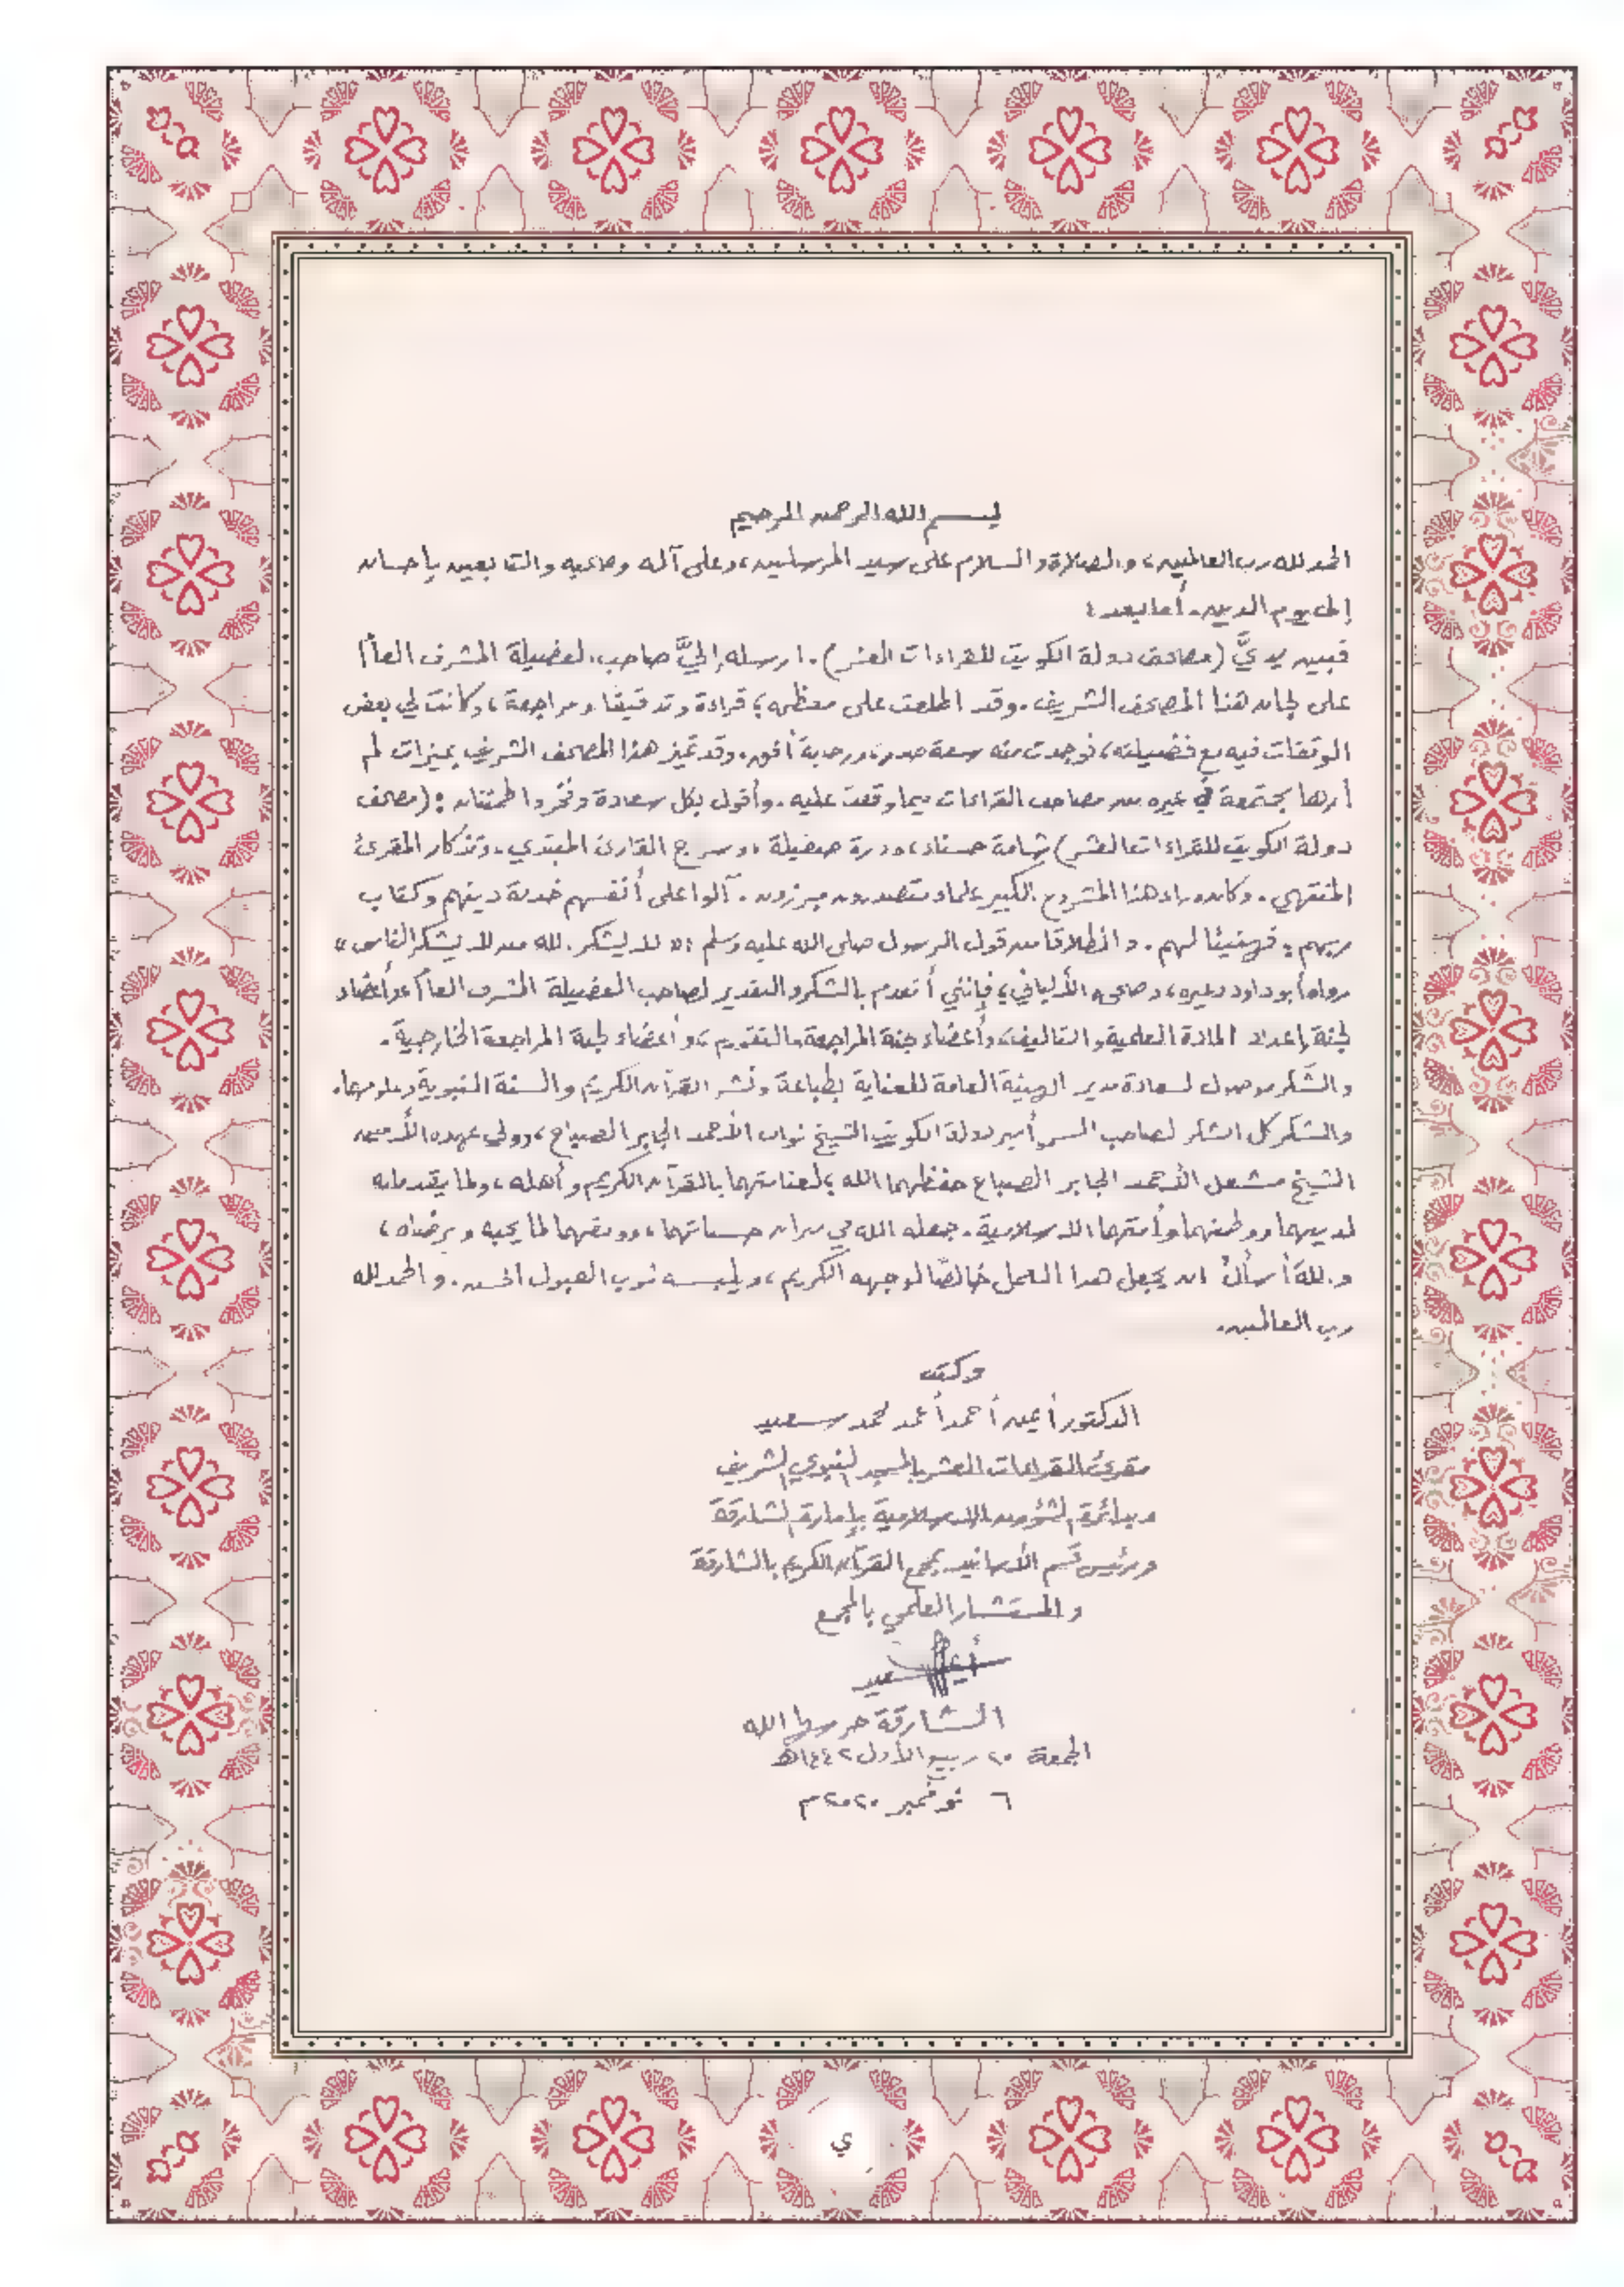 بسم الله الرحمن الرحيم
الحمد لله رب العالمين، والصلاة والسلام على سيد المرسلين، وعلى آله وصحبه والتابعين بإحسان
إلى يوم الدين. أما بعد:
فبين يديَّ (مصحف دولة الكويت للقراءات العشر). أرسله إليَّ صاحب الفضيلة المشرف العام
على لجان هذا المصحف الشريف. وقد اطلعت على معظمه؛ قراءة وتدقيقًا ومراجعة، وكانت لي بعض
الوقفات فيه مع فضيلته، فوجدت منه سعة صدر، ورحابة أفق. وقد تميز هذا المصحف الشريف بميزات لم
أرها مجتمعة في غيره من مصاحف القراءات فيما وقفت عليه. وأقول بكل سعادة وفخر وامتنان: (مصحف
دولة الكويت للقراءات العشر) شامة حسناء، ودرة صقيلة، وسراج القارئ المبتدي، وتذكار المقرئ
المنتهي. وكان وراء هذا المشروع الكبير علماء متصدرون مبرزون. آلوا على أنفسهم خدمة دينهم وكتاب
ربهم؛ فهنيئًا لهم. وانطلاقا من قول الرسول صلى الله عليه وسلم: « لا يشكر الله من لا يشكر الناس »
رواه أبو داود وغيره، وصححه الألباني؛ فإنني أتقدم بالشكر والتقدير لصاحب الفضيلة المشرف العام، وأعضاء
لجنة إعداد المادة العلمية والتأليف، وأعضاء لجنة المراجعة والتقويم، وأعضاء لجنة المراجعة الخارجية.
والشكر موصول لسعادة مدير الهيئة العامة للعناية بطباعة ونشر القرآن الكريم والسنة النبوية وعلومهما.
والشكر كل الشكر لصاحب السمو أمير دولة الكويت الشيخ نواف الأحمد الجابر الصباح، وولي عهده الأمين
الشيخ مشعل الأحمد الجابر الصباح حفظهما الله؛ لعنايتهما بالقرآن الكريم وأهله، ولما يقدمانه
لدينهما ووطنهما وأمتهما الإسلامية. جعله الله في ميزان حسناتهما، ووفقهما لما يحبه ويرضاه،
واللهَ أسألُ أن يجعل هذا العمل خالصًا لوجهه الكريم، ويلبسه ثوب القبول الحسن. والحمد لله
رب العالمين.
وكتب
الدكتور أيمن أحمد أحمد محمد سعيد
مقرئ القراءات العشر بالمسجد النبوي الشريف
وبدائرة الشؤون الإسلامية بإمارة الشارقة
ورئيس قسم الأسانيد بمجمع القرآن الكريم بالشارقة
والمستشار العلمي بالمجمع
أيمن سعيد
الشارقة حرسها الله
الجمعة ٢٠ ربيع الأول ١٤٤٢هـ
٦ نوفمبر ٢٠٢٠م
ي